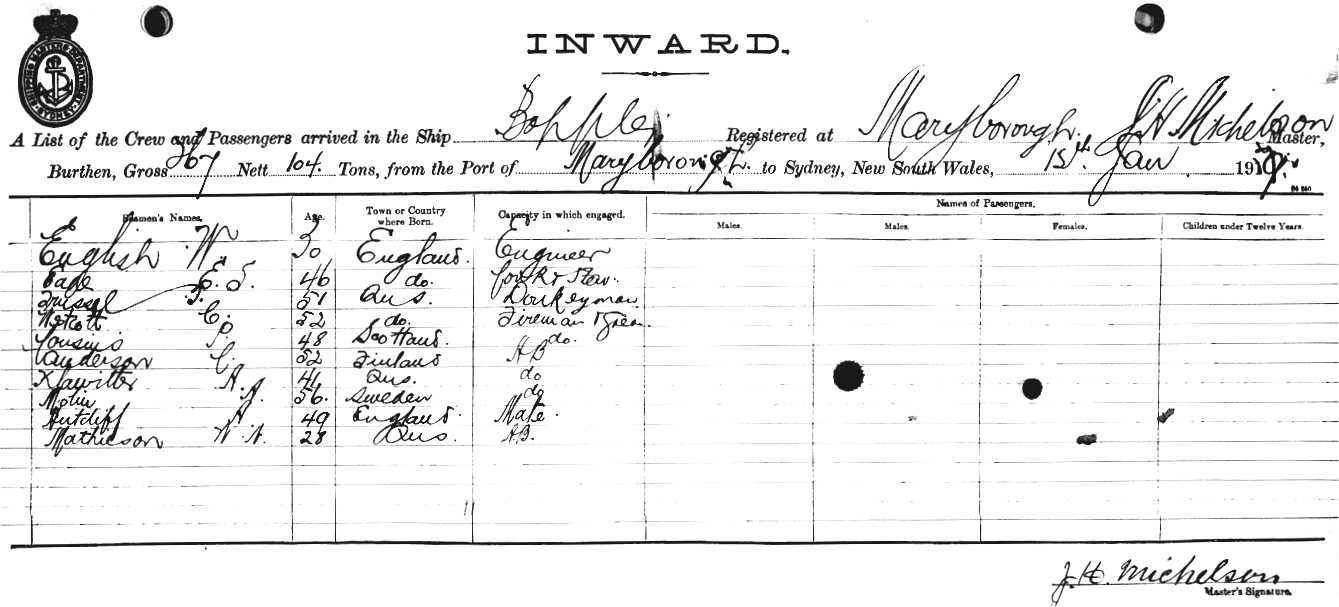 SHIPPING MASTERS DEPARTMENT SYDNEY
INWARD.
A List of the Crew and Passengers arrived in the Ship Bopple Registered at Maryborough. J H Michelson Master,
Burthen, Gross 267 Nett 104. Tons, from the Port of Maryborough to Sydney, New South Wales, 15th Jan 19
Names of Passengers.
Seamen's Names. Age. Town or Country where Born. Capacity in which engaged. Males. Males. Females. Children under Twelve Years.
English W. 30 England. Engineer
E. S. 46 do. Cook & Stew.
T. 51 Aus. Donkeyman
C. 52 do. Fireman
Cousins P. 48 Scotland. do.
Anderson C. 52 Finland AB
Klawitter A. 46 Aus. do
Molin A. 56. Sweden do
Sutcliff A. 49 England Mate.
Mathieson N. N. 28 Aus. AB.
J. H. Michelson
Master's Signature.